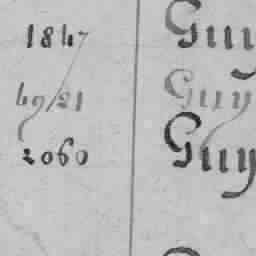 1847 Guy
49/21 Guy
2060 Guy